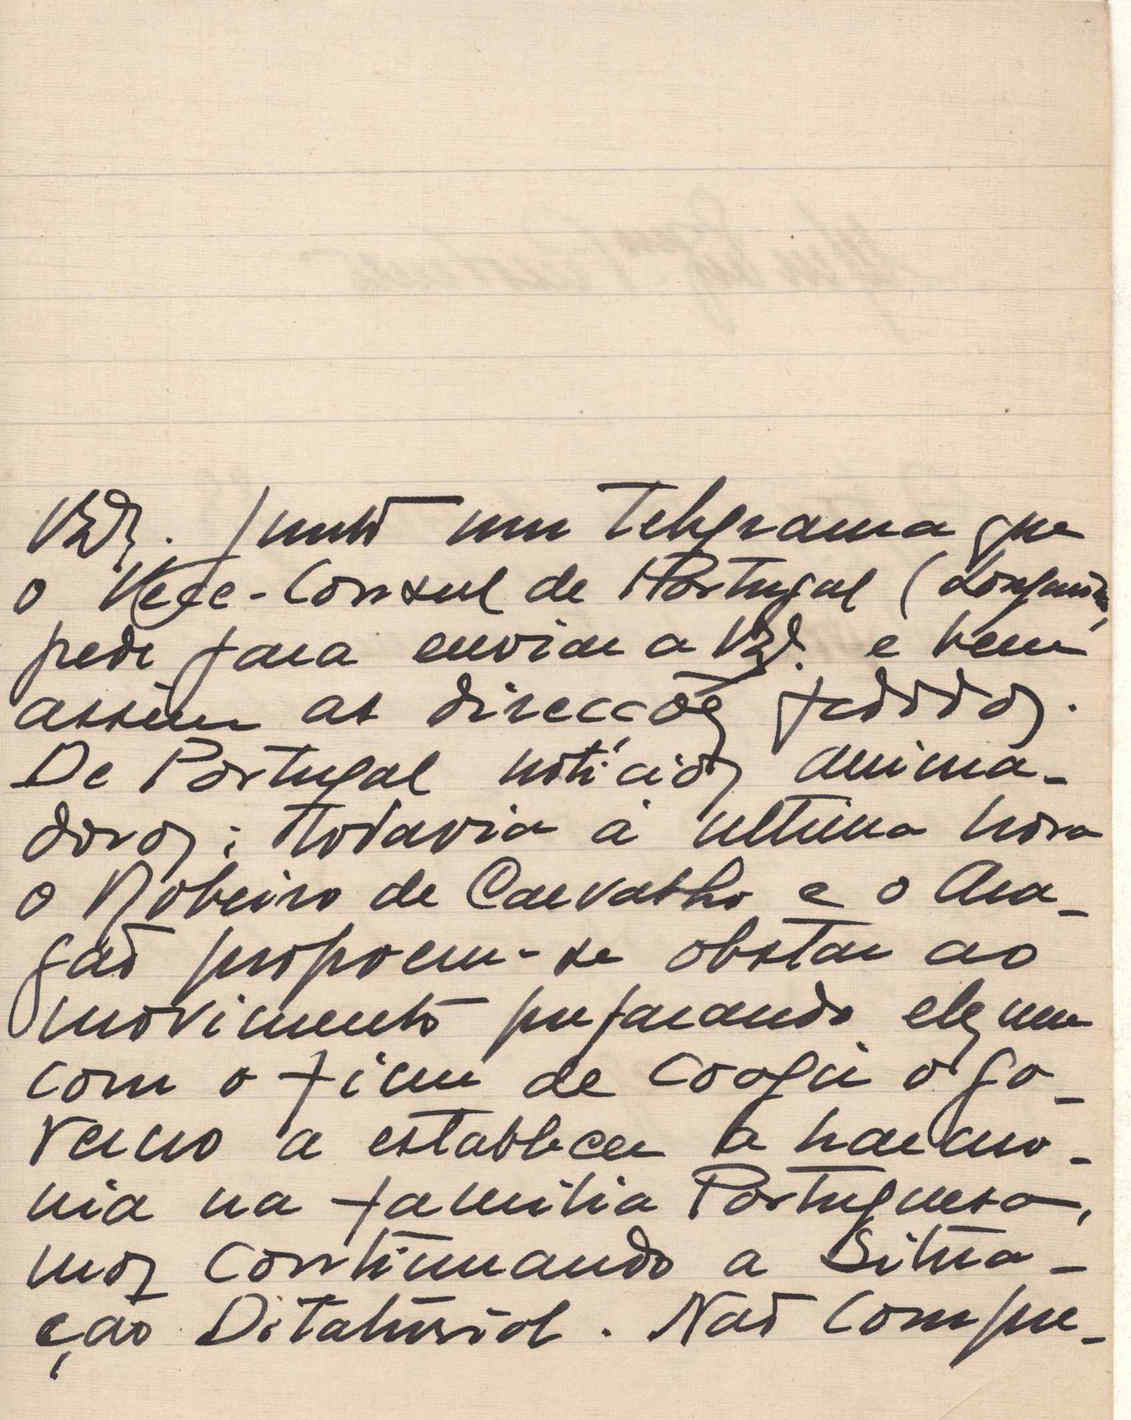 junto um telegrama que
o Vece-Consul de Portugal (
pede para enviar a V. e bem
assim as direcções pedidas.
De Portugal notícias anima-
doras; todavia á ultima hora
o Ribeiro de Carvalho e o Ara-
gão propoem-se obstar ao
movimento preparando eles um
com o fim de coagir o go-
verno a establecer a harmo-
nia na familia Portuguesa,
mas continuando a Situa-
ção Ditatorial. Não compre-